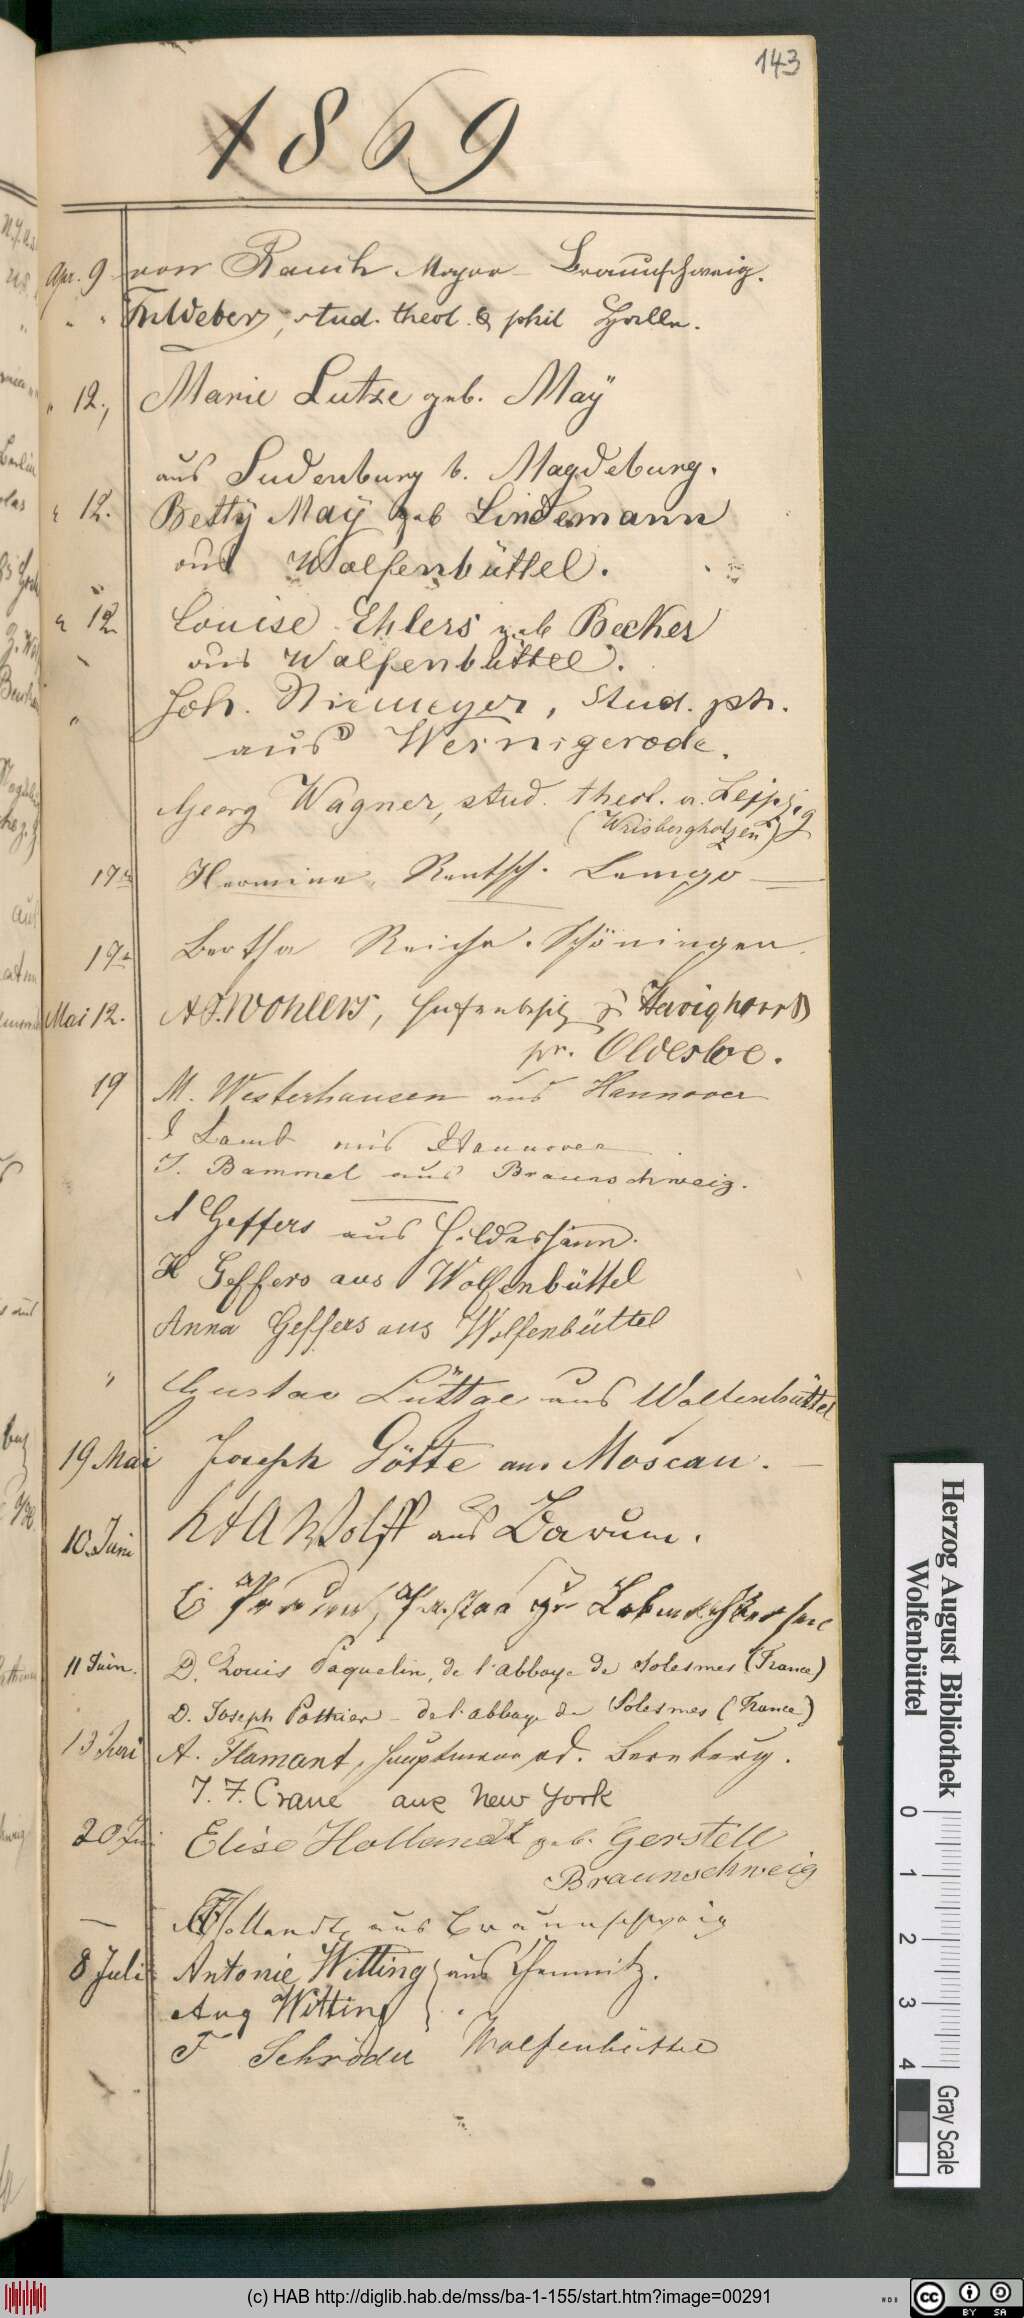 143
1869
Apr. 9 von Rauch Major Braunschweig.
" " Fr. Weber, stud. theol. & phil Halle.
" 12., Marie Lutze geb. Maÿ
aus Sudenburg b. Magdeburg.
" 12. Betty Maÿ geb Lindemann
aus Wolfenbüttel.
" 12 Louise Ehlers geb Becker
aus Wolfenbüttel.
" Joh. Niemeyer, Stud. ph.
aus Wernigerode.
Georg Wagner, stud. theol. a. Leipzig
(Wrisbergholzen)
17 Hermine Rentsch. Lemgo
19 Bertha Reiche. Schöningen.
Mai 12. A F. Wohlers, Hufenbesitz. z. Havighorst
pr. Oldesloe.
19 M. Westerhausen aus Hannover
Lamb aus Hannover
J. Bammel aus Braunschweig.
A Geffers aus Hildesheim.
H Geffers aus Wolfenbüttel
Anna Geffers aus Wolfenbüttel
" Gustav Lüttge aus Wolfenbüttel
19 Mai Joseph Götte aus Moscau.
10. Juni Wolff aus Barum.
11 Juin. D. Louis Paquelin, de l'abbaye de Solesmes (France)
D. Joseph Pothier - de l'abbaye de Solesmes (France)
13 Juni A. Flamant, Hauptmann ad. Bernburg.
J. F. Crane aus New York
20 Juni Elise Hollandt geb. Gerstell
Braunschweig
Hollandt, aus Braunschweig
8 Juli Antonie Witting } aus Chemnitz.
Aug Witting }
F Schröder Wolfenbüttel
Herzog August Bibliothek
Wolfenbüttel
0 1 2 3 4
Gray Scale
(c) HAB http://diglib.hab.de/mss/ba-1-155/start.htm?image=00291
WDB
cc BY SA